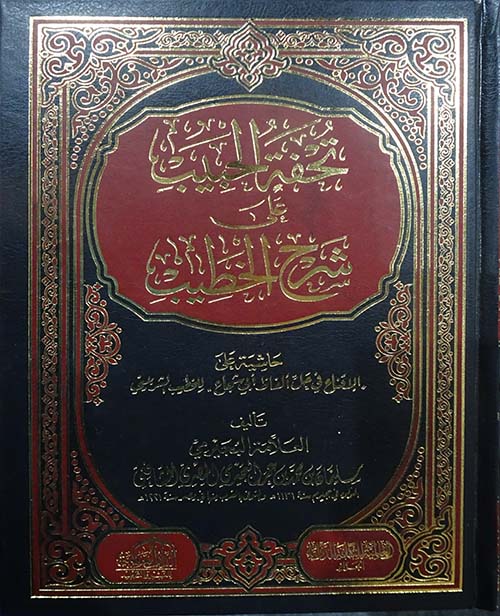 تحفة الحبيب
على
شرح الخطيب
حاشية على
"الإقناع في حل ألفاظ أبي شجاع" للخطيب الشربيني
تأليف
العلامة البجيرمي
سليمان بن محمد بن عمر البجيرمي المصري الشافعي
سنة ١٢٢١هـ